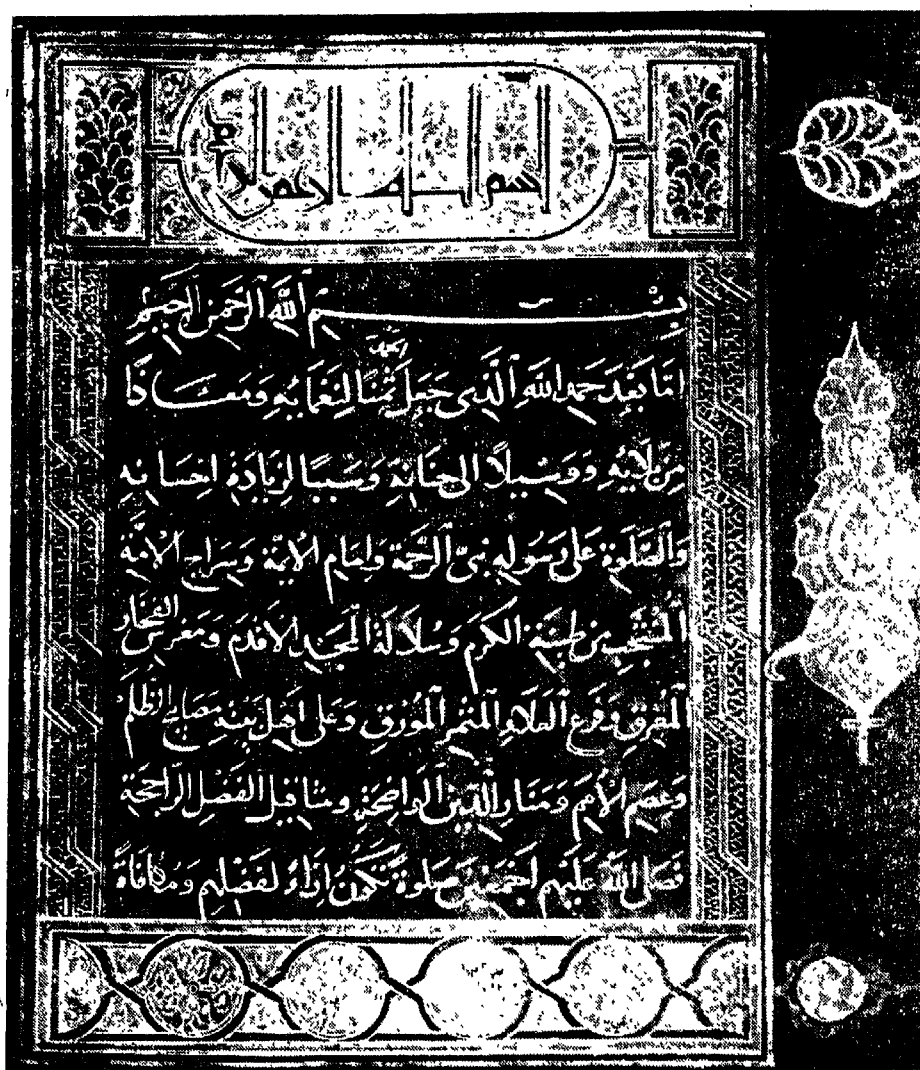 بسم الله الرحمن الرحيم
بِسْمِ ٱللَّهِ ٱلرَّحْمَنِ ٱلرَّحِيمِ
امّا بَعْدَ حَمْدِ اللهِ ٱلَّذِى جَعَلَ الحمد ثَمَنًا لِنَعْمَائِهِ وَمَعَاذًا
مِنْ بَلَائِهِ وَوَسِيْلاً الى جِنَانِهِ وَسَبَبًا لِزِيَادَةِ احْسَانِهِ
وَالصَّلوةِ عَلى رَسُولِهِ نبىّ ٱلرَّحْمَةِ وَاِمَامِ الأئمّةِ وَسِرَاجِ الأُمّةِ
ٱلْمُنْتَخَبِ مِن طِينَةِ الكَرَمِ وَسُلَالَةِ المَجْدِ الأقْدَمِ وَمَغْرِسِ الفَخَارِ
ٱلْمُعْرِقِ وَفَرْعِ ٱلعَلَاءِ ٱلْمُثْمِرِ ٱلْمُوْرِقِ وَعَلى اهْلِ بَيْتِهِ مَصَابيحِ الظُّلَمِ
وَعِصَمِ الأُمَمِ وَمَنَارِ الدِّينِ الوَاضِحَةِ ومَثَاقِيلِ الفَضْلِ الرَّاجِحَةِ
فَصَلَّى ٱللهُ عَلَيْهِم اجْمَعينَ صَلوةً تَكُونُ اِزَاءً لِفَضْلِهِمْ وَمُكَافَاةً